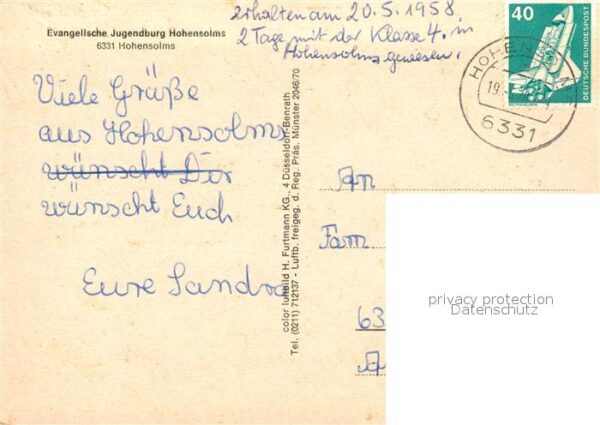 Evangelische Jugendburg Hohensolms
6331 Hohensolms
erhalten am 20.5.1958.
2 Tage mit der Klasse 4. in
Hohensolms gewesen.
40
DEUTSCHE BUNDESPOST
HOHEN
19.
6331
Viele Grüße
aus Hohensolms
wünscht Dir
wünscht Euch
Eure Sandra
color luftbild H. Furtmann KG., 4 Düsseldorf-Benrath
Tel. (0211) 712137 - Luftb. freigeg. d. Reg. Präs. Münster 2046/70
An
Fam
63
privacy protection
Datenschutz